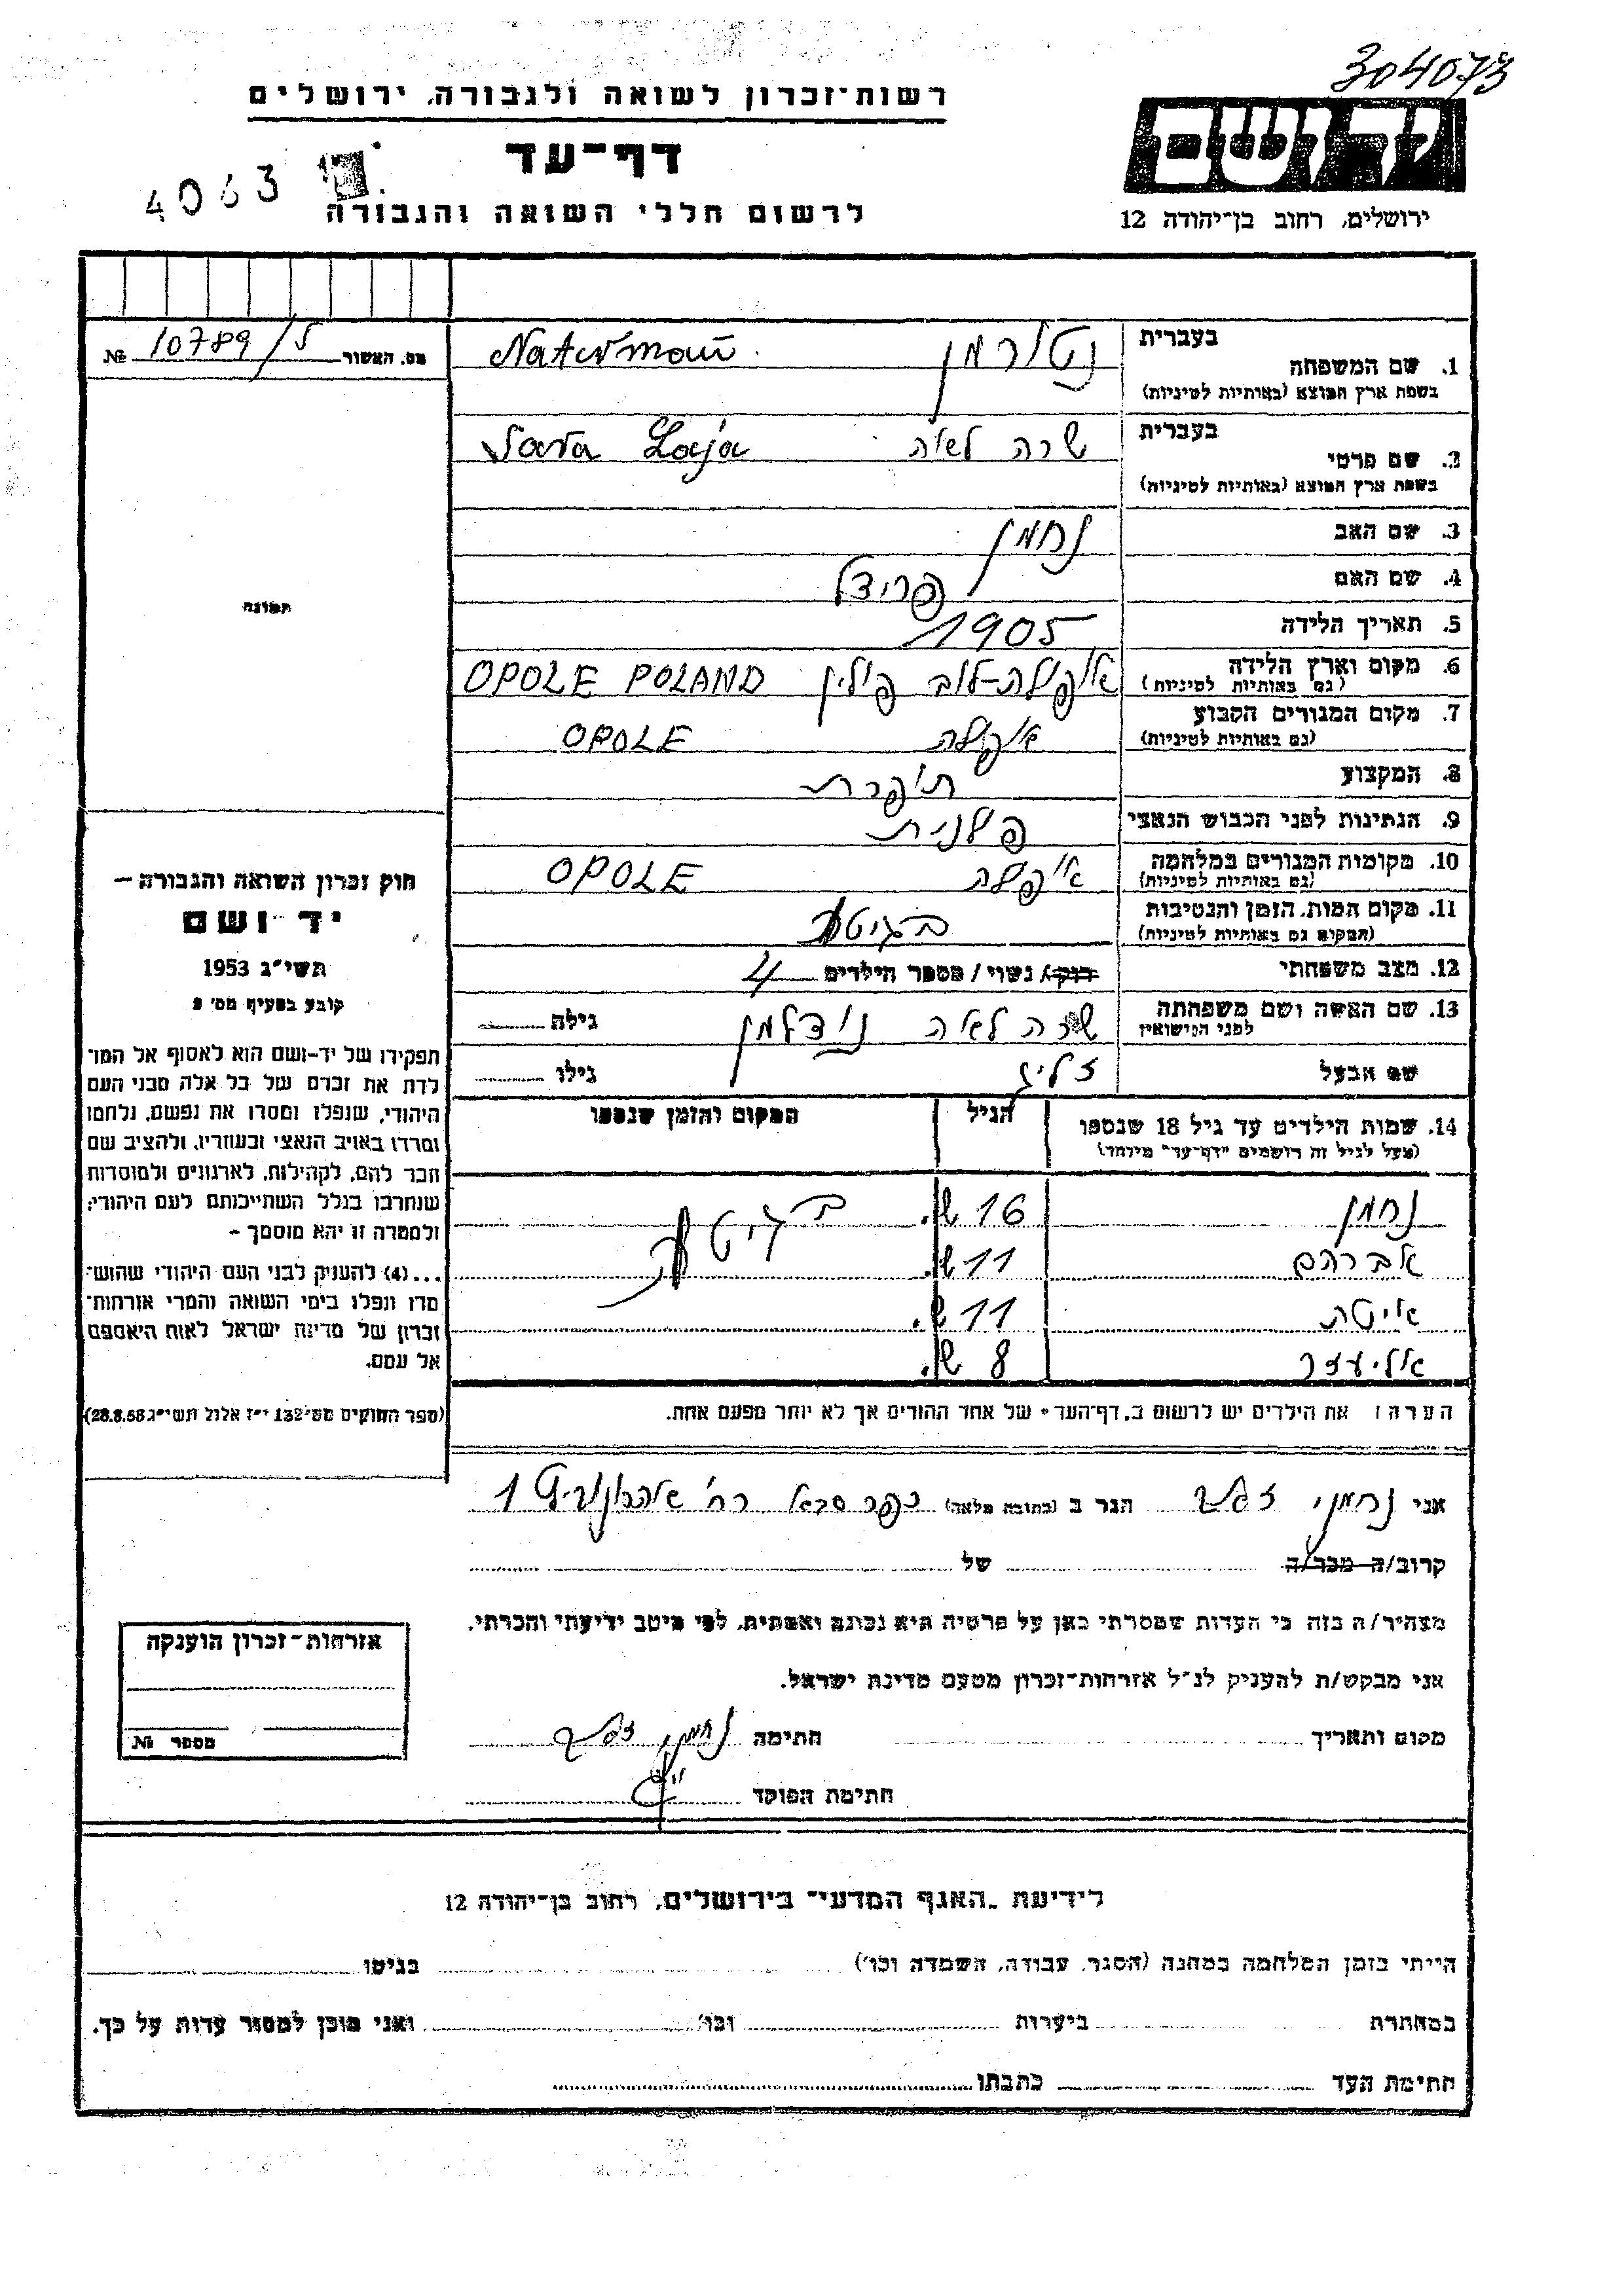 304073
רשות־זכרון לשואה ולגבורה, ירושלים
יד ושם
דף־עד
4063
לרשום חללי השואה והגבורה
ירושלים, רחוב בן־יהודה 12
מס. האשור № 10789/5
1. שם המשפחה בעברית נטורמן Naturman
בשפת ארץ המוצא (באותיות לטיניות)
2. שם פרטי בעברית שרה לאה Sara Laja
בשפת ארץ המוצא (באותיות לטיניות)
3. שם האב נחמן
4. שם האם פרידל
5. תאריך הלידה 1905
6. מקום וארץ הלידה אופולה-לוב פולין OPOLE POLAND
(גם באותיות לטיניות)
7. מקום המגורים הקבוע אופולה OPOLE
(גם באותיות לטיניות)
8. המקצוע תופרת
9. הנתינות לפני הכבוש הנאצי פולנית
10. מקומות המגורים במלחמה אופולה OPOLE
(גם באותיות לטיניות)
11. מקום המות, הזמן והנסיבות בגיטו
(המקום גם באותיות לטיניות)
12. מצב משפחתי רווק/ נשוי / מספר הילדים 4
13. שם האשה ושם משפחתה שרה לאה נודלמן גילה
לפני הנישואין
שם הבעל זליג גילו
14. שמות הילדים עד גיל 18 שנספו הגיל המקום והזמן שנספו
(מעל לגיל זה רושמים "דף־עד" מיוחד)
נחמן 16 ש. בגיטו
אברהם 11 ש.
איטה 11 ש.
אליעזר 8 ש.
הערה: את הילדים יש לרשום ב„דף־העד" של אחד ההורים אך לא יותר מפעם אחת.
תמונה
חוק זכרון השואה והגבורה —
יד ושם
תשי"ג 1953
קובע בסעיף מס' 2
תפקידו של יד-ושם הוא לאסוף אל המו־
לדת את זכרם של כל אלה מבני העם
היהודי, שנפלו ומסרו את נפשם, נלחמו
ומרדו באויב הנאצי ובעוזריו, ולהציב שם
וזכר להם, לקהילות, לארגונים ולמוסדות
שנחרבו בגלל השתייכותם לעם היהודי;
ולמטרה זו יהא מוסמך –
...(4) להעניק לבני העם היהודי שהוש־
מדו ונפלו בימי השואה והמרי אזרחות־
זכרון של מדינת ישראל לאות היאספם
אל עמם.
(ספר החוקים מס' 132 י"ז אלול תשי"ג 28.8.53)
אני נחמני זאב הגר ב (כתובת מלאה) כפר סבא רח'
קרוב/ה מכר/ה של
מצהיר/ה בזה כי העדות שמסרתי כאן על פרטיה היא נכונה ואמתית, לפי מיטב ידיעתי והכרתי.
אני מבקש/ת להעניק לנ"ל אזרחות־זכרון מטעם מדינת ישראל.
מקום ותאריך חתימה נחמני זאב
חתימת הפוקד
אזרחות־זכרון הוענקה
מספר №
לידיעת „האגף המדעי" בירושלים, רחוב בן־יהודה 12
הייתי בזמן המלחמה במחנה (הסגר, עבודה, השמדה וכו') בגיטו
במחתרת ביערות וכו' ואני מוכן למסור עדות על כך.
חתימת העד כתבתו